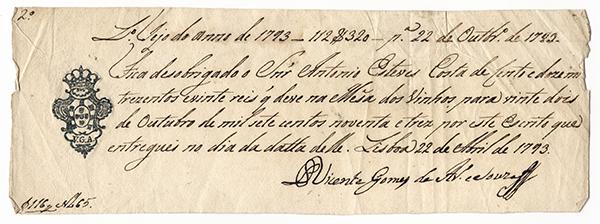 2º
Lº Vº do anno de 1793 — 112$320 — pª 22 de Outbrº de 1793.
Fica desobrigado o Snr Antonio Esteves Costa de sento e doze mil
trezentos e vinte reis q deve na Mêsa dos Vinhos para vinte dois
de Outubro de mil sete centos noventa e trez por este Escrito que
entregues no dia da datta delle. Lisboa 22 de Abril de 1793.
V.G.A.
Vicente Gomes de Al. e Souza